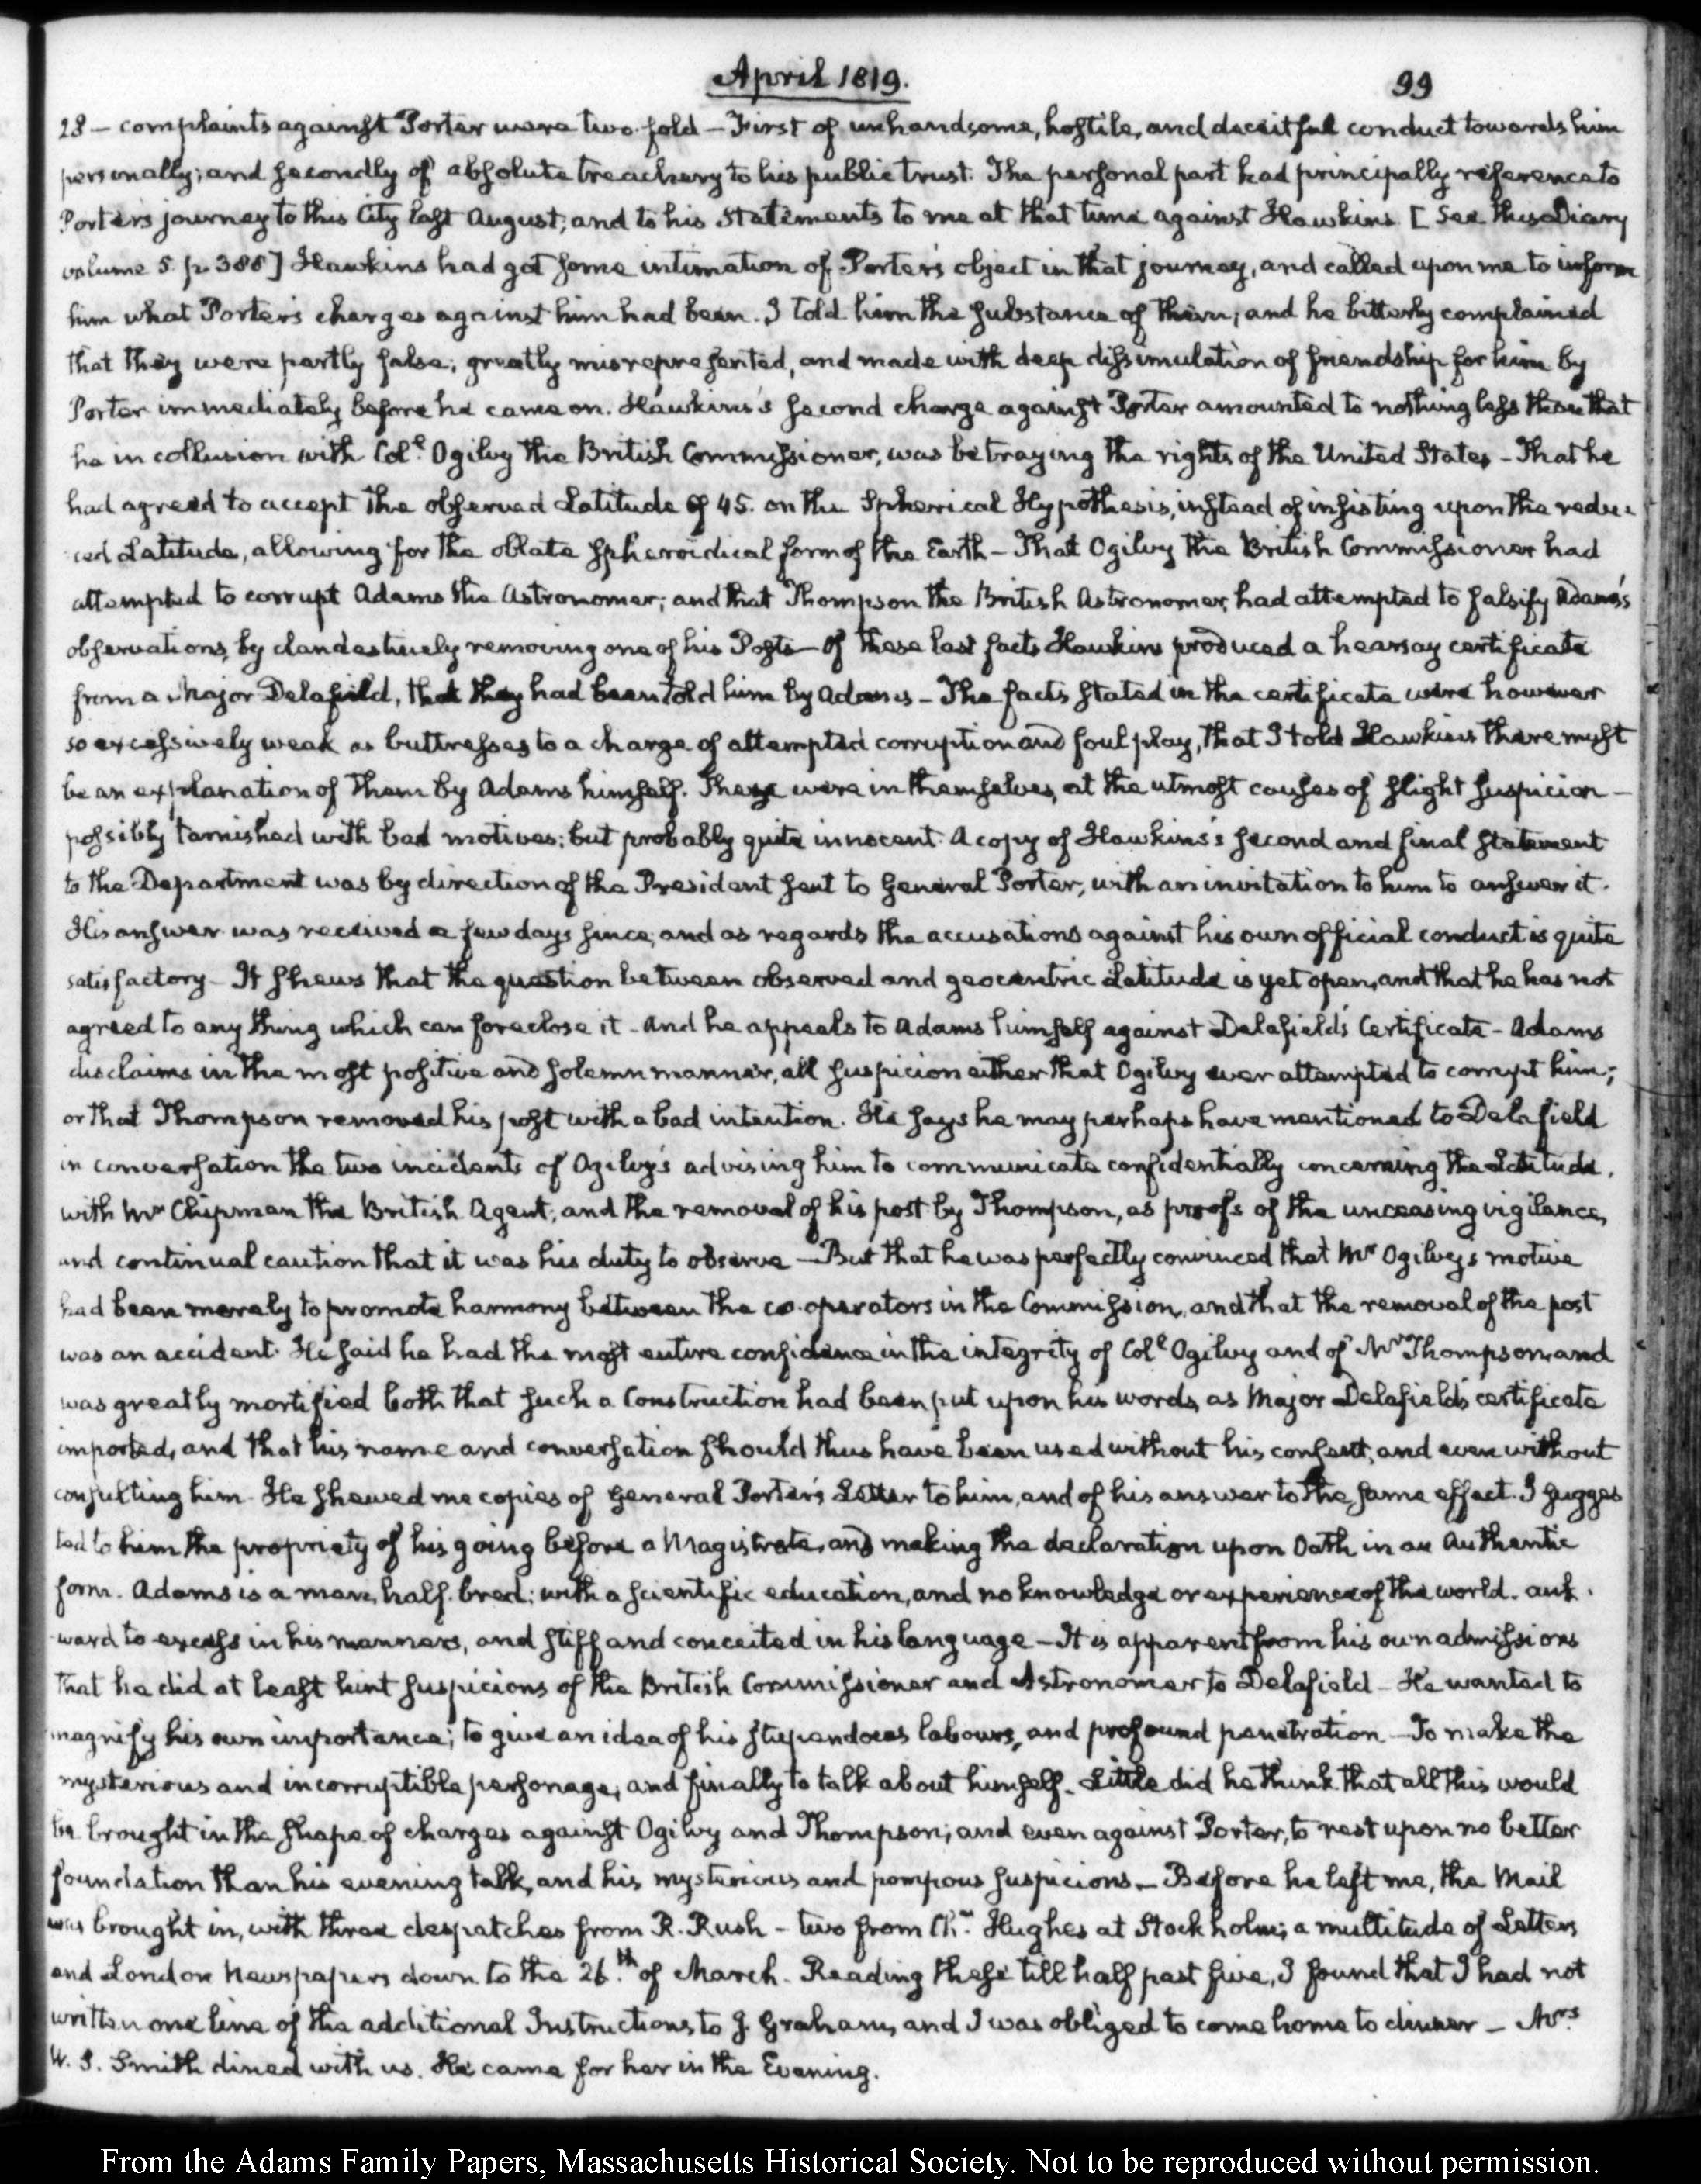 April 1819.
99
28 — complaints against Porter were two fold — First of unhandsome, hostile, and deceitful conduct towards him
personally; and secondly of absolute treachery to his public trust. The personal part had principally reference to
Porter's journey to this City last August; and to his Statements to me at that time against Hawkins [See this Diary
volume 5. p. 388] Hawkins had got some intimation of Porter's object in that journey, and called upon me to inform
him what Porter's charges against him had been. I told him the substance of them; and he bitterly complained
that they were partly false; greatly misrepresented, and made with deep dissimulation of friendship for him by
Porter immediately before he came on. Hawkins's second charge against Porter amounted to nothing less than that
he in collusion with Coll. Ogilvy the British Commissioner, was betraying the rights of the United States — That he
had agreed to accept the observed Latitude of 45. on the Spherical Hypothesis, instead of insisting upon the redu-
ced Latitude, allowing for the oblate spheroidical form of the Earth — That Ogilvy the British Commissioner had
attempted to corrupt Adams the Astronomer; and that Thompson the British Astronomer, had attempted to falsify Adams's
observations, by clandestinely removing one of his Posts — Of these last facts Hawkins produced a hearsay certificate
from a Major Delafield, that they had been told him by Adams — The facts stated in the certificate were however
so excessively weak as buttresses to a charge of attempted corruption and foul play, that I told Hawkins there must
be an explanation of them by Adams himself. These were in themselves, at the utmost causes of slight suspicion —
possibly tarnished with bad motives; but probably quite innocent. A copy of Hawkins's second and final statement
to the Department was by direction of the President sent to General Porter, with an invitation to him to answer it.
His answer was received a few days since, and as regards the accusations against his own official conduct is quite
satisfactory — It shews that the question between observed and geocentric Latitude is yet open, and that he has not
agreed to any thing which can foreclose it — And he appeals to Adams himself against Delafield's Certificate — Adams
disclaims in the most positive and solemn manner, all suspicion either that Ogilvy ever attempted to corrupt him;
or that Thompson removed his post with a bad intention. He says he may perhaps have mentioned to Delafield
in conversation the two incidents of Ogilvy's advising him to communicate confidentially concerning the Latitude,
with Mr. Chipman the British Agent; and the removal of his post by Thompson, as proofs of the unceasing vigilance,
and continual caution that it was his duty to observe — But that he was perfectly convinced that Mr Ogilvy's motive
had been merely to promote harmony between the co-operators in the Commission, and that the removal of the post
was an accident. He said he had the most entire confidence in the integrity of Coll Ogilvy and of Mr Thompson, and
was greatly mortified both that such a Construction had been put upon his words, as Major Delafield's certificate
imported, and that his name and conversation should thus have been used without his consent, and even without
consulting him. He shewed me copies of General Porter's Letter to him, and of his answer to the same effect. I sugges
ted to him the propriety of his going before a Magistrate, and making the declaration upon Oath in an Authentic
form. Adams is a man, half-bred; with a scientific education, and no knowledge or experience of the world. auk-
ward to excess in his manners, and stiff and conceited in his language — It is apparent from his own admissions
that he did at least hint suspicions of the British Commissioner and Astronomer to Delafield — He wanted to
magnify his own importance; to give an idea of his stupendous labours, and profound penetration — To make the
mysterious and incorruptible personage; and finally to talk about himself. Little did he think that all this would
be brought in the shape of charges against Ogilvy and Thompson; and even against Porter, to rest upon no better
foundation than his evening talk, and his mysterious and pompous suspicions — Before he left me, the Mail
was brought in, with three despatches from R. Rush — two from Chr. Hughes at Stockholm; a multitude of Letters
and London Newspapers down to the 26th. of March. Reading these till half past five, I found that I had not
written one line of the additional Instructions to J. Graham, and I was obliged to come home to dinner — Mrs.
W. S. Smith dined with us. He came for her in the Evening.
From the Adams Family Papers, Massachusetts Historical Society. Not to be reproduced without permission.